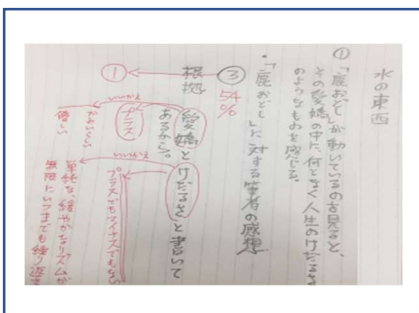 水の東西
①「鹿おどし」が動いているのを見ると、
その愛嬌の中に、何となく人生のけだるさ
のようなものを感じる。
・「鹿おどし」に対する筆者の感想
③ 54%
①
根拠
愛嬌とけだるさと書いて
あるから。
プラス
かわいい
優しい
プラスでもマイナスでもない
単純な緩やかなリズムが
無限にいつまでも繰り返す